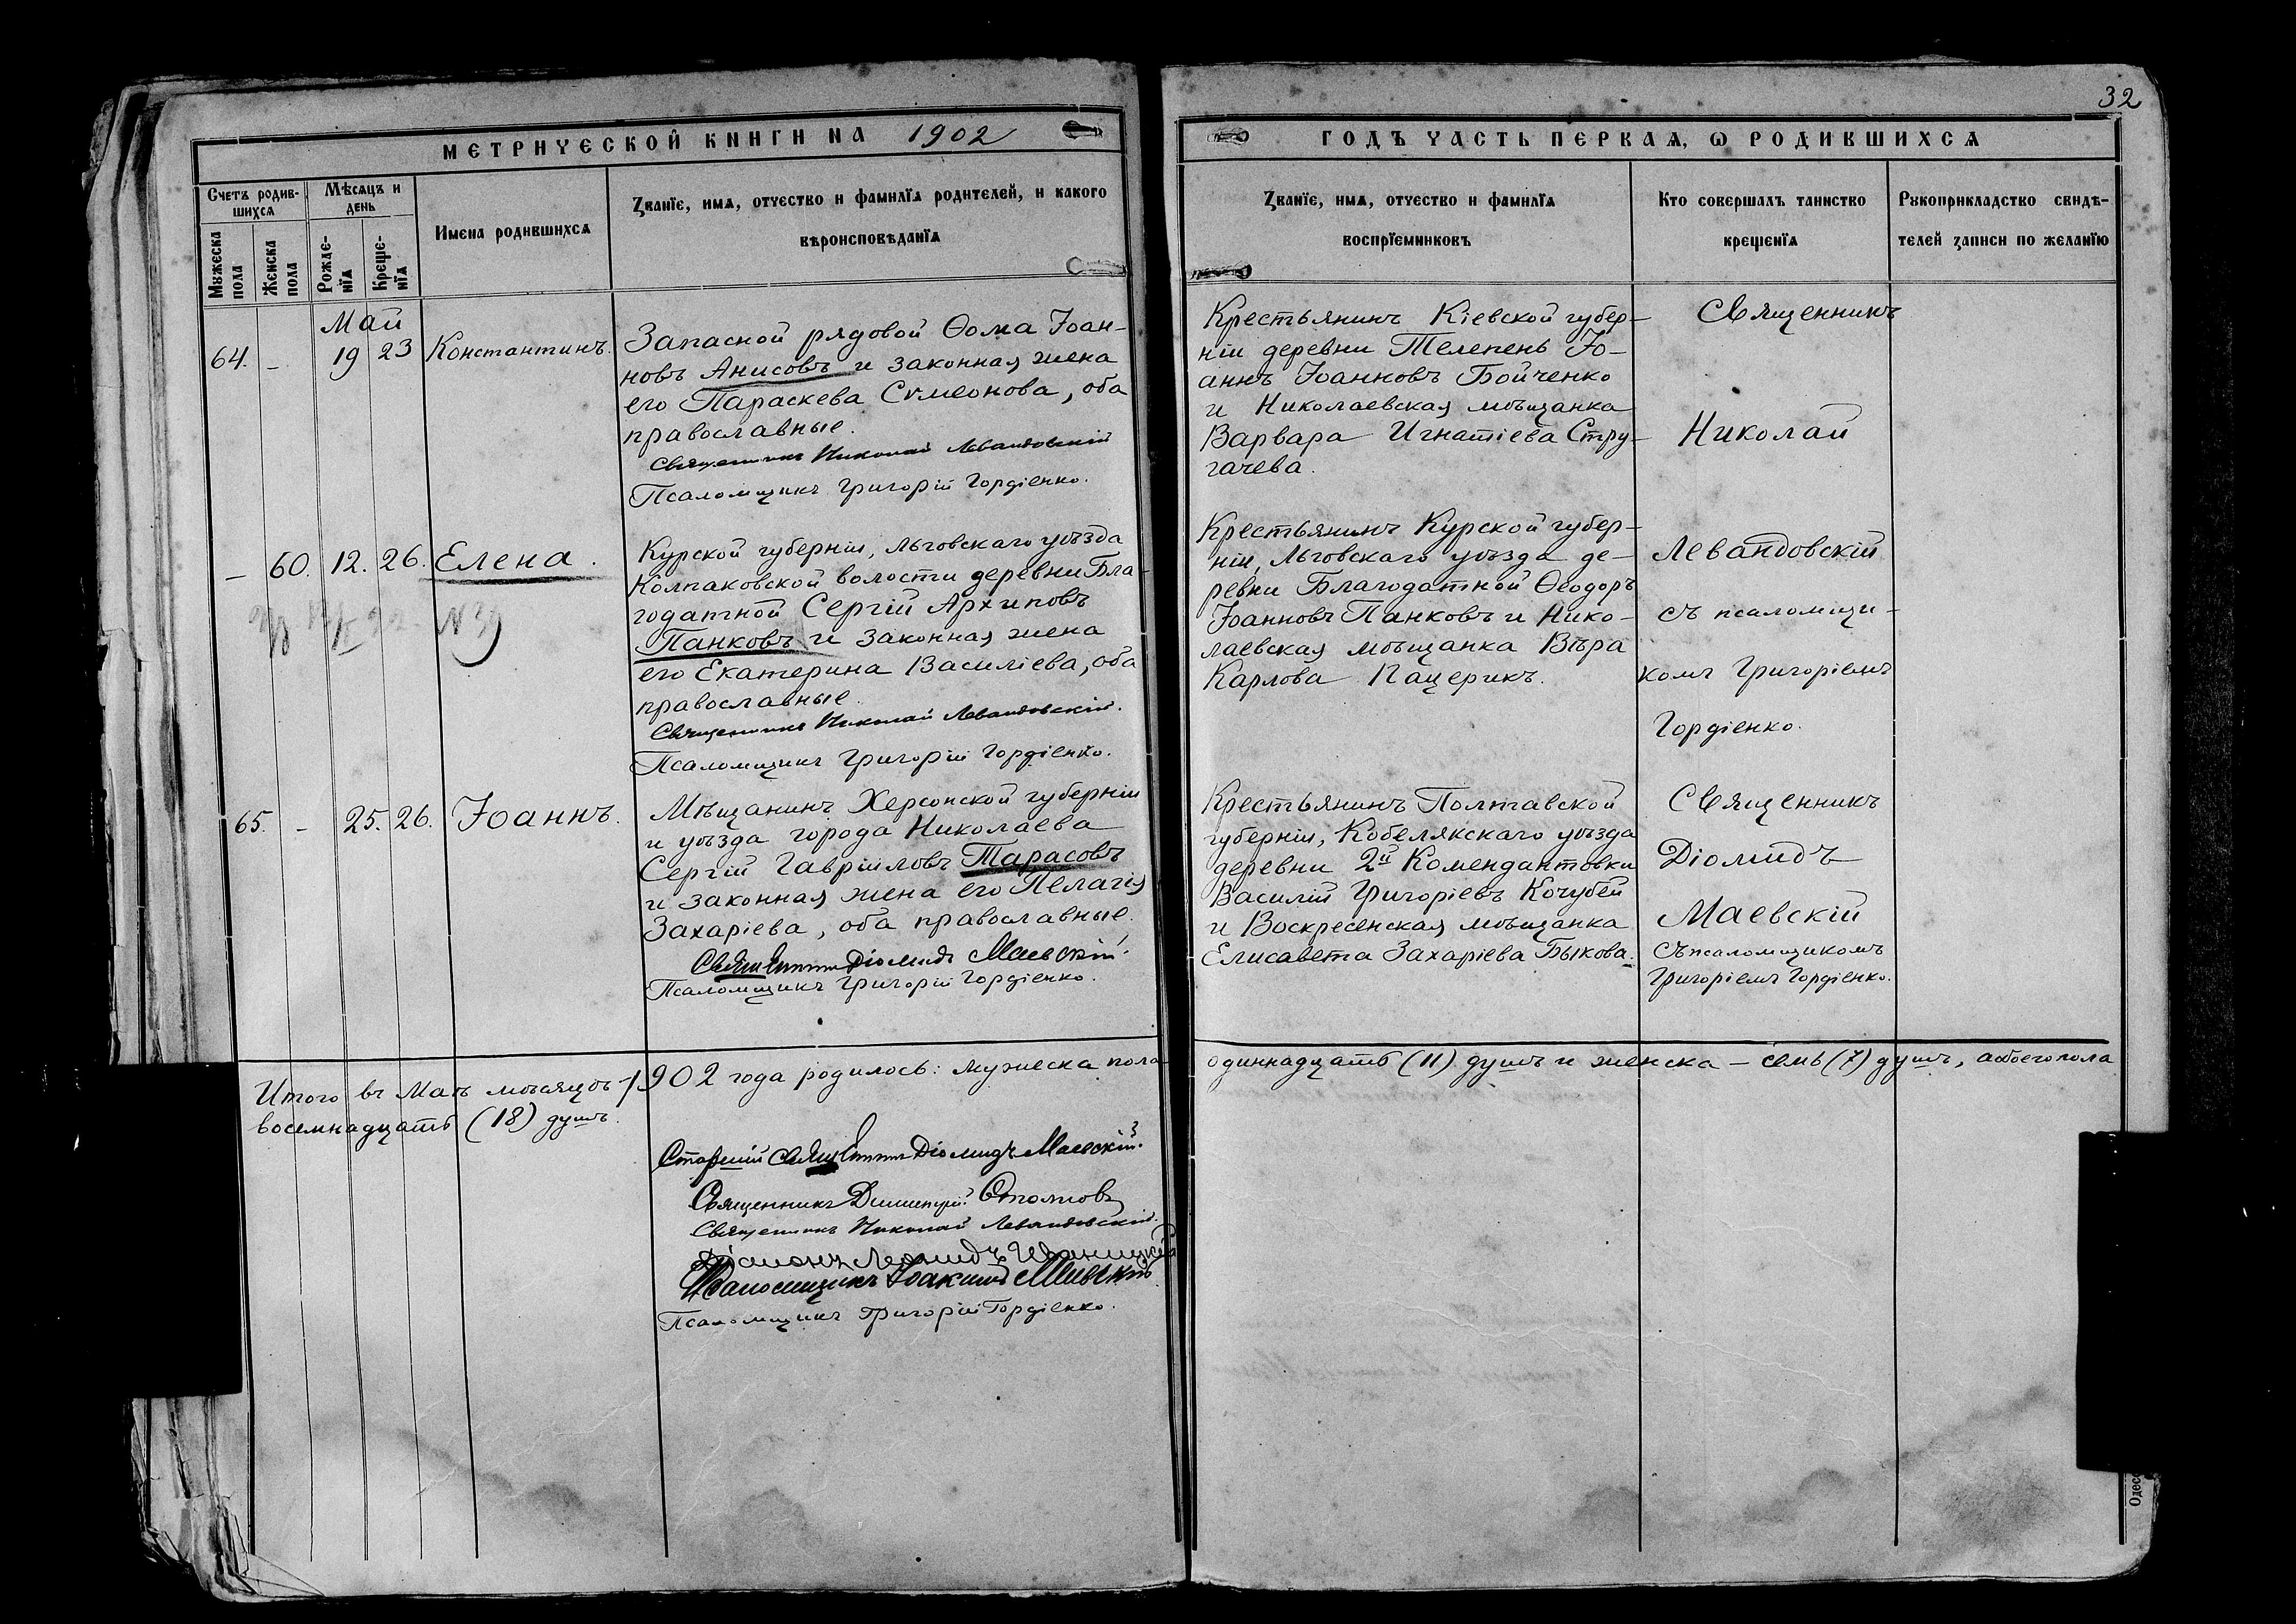 32
МЕТРИЧЕСКОЙ КНИГИ НА 1902
ГОДЪ ЧАСТЬ ПЕРВАЯ, Ѡ РОДИВШИХСЯ
Счетъ родив-
шихся
Мѣсяцъ и
день
Мужеска
пола
Женска
пола
Рожде-
нїя
Креще-
нїя
Имена родившихся
Званїе, имя, отчество и фамилїя родителей, и какого
вѣроисповѣданїя
Званїе, имя, отчество и фамилїя
воспрїемниковъ
Кто совершалъ таинство
крещенїя
Рукоприкладство свидѣ-
телей записи по желанїю
Май
64. - 19 23 Константинъ.
Запасной рядовой Ѳома Іоан-
новъ Анисовъ и законная жена
его Параскева Сѵмеонова, оба
православные.
Священникъ Николай Левандовскій
Псаломщикъ Григорій Гордіенко.
Крестьянинъ Кіевской губер-
ніи деревни Телепень Іо-
аннъ Іоанновъ Бойченко
и Николаевская мѣщанка
Варвара Игнатіева Стру-
гачева.
Священникъ
Николай
Левандовскій
съ псаломщи-
комъ Григоріемъ
Гордіенко.
- 60. 12. 26. Елена.
N 39
Курской губерніи, Льговскаго уѣзда
Колпаковской волости деревни Бла-
годатной Сергій Архиповъ
Панковъ и законная жена
его Екатерина Василіева, оба
православные.
Священникъ Николай Левандовскій.
Псаломщикъ Григорій Гордіенко.
Крестьянинъ Курской губер-
ніи, Льговскаго уѣзда де-
ревни Благодатной Ѳеодоръ
Іоанновъ Панковъ и Нико-
лаевская мѣщанка Вѣра
Карлова Пацерикъ.
65. - 25. 26. Іоаннъ.
Мѣщанинъ Херсонской губерніи
и уѣзда города Николаева
Сергій Гавріиловъ Тарасовъ
и законная жена его Пелагія
Захаріева, оба православные.
Священникъ Діомидъ Маевскій.
Псаломщикъ Григорій Гордіенко.
Крестьянинъ Полтавской
губерніи, Кобелякскаго уѣзда
деревни 2й Комендантовки
Василій Григоріевъ Кочубей
и Воскресенская мѣщанка
Елисавета Захаріева Быкова.
Священникъ
Діомидъ
Маевскій
съ псаломщикомъ
Григоріемъ Гордіенко.
Итого въ Маѣ мѣсяцѣ 1902 года родилось: мужеска пола одиннадцать (11) душъ и женска — семь (7) душъ, а обоего пола
восемнадцать (18) душъ.
Старшій священникъ Діомидъ Маевскій.
Священникъ Димитрій
Священникъ Николай Левандовскій.
Діаконъ Леонидъ
Псаломщикъ Іоакимъ
Псаломщикъ Григорій Гордіенко.
Одесс